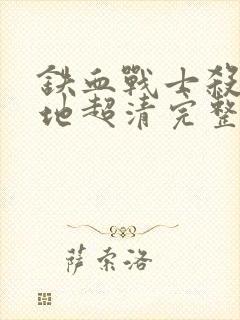 鉄血戰士殺
地超清完整
萨索洛